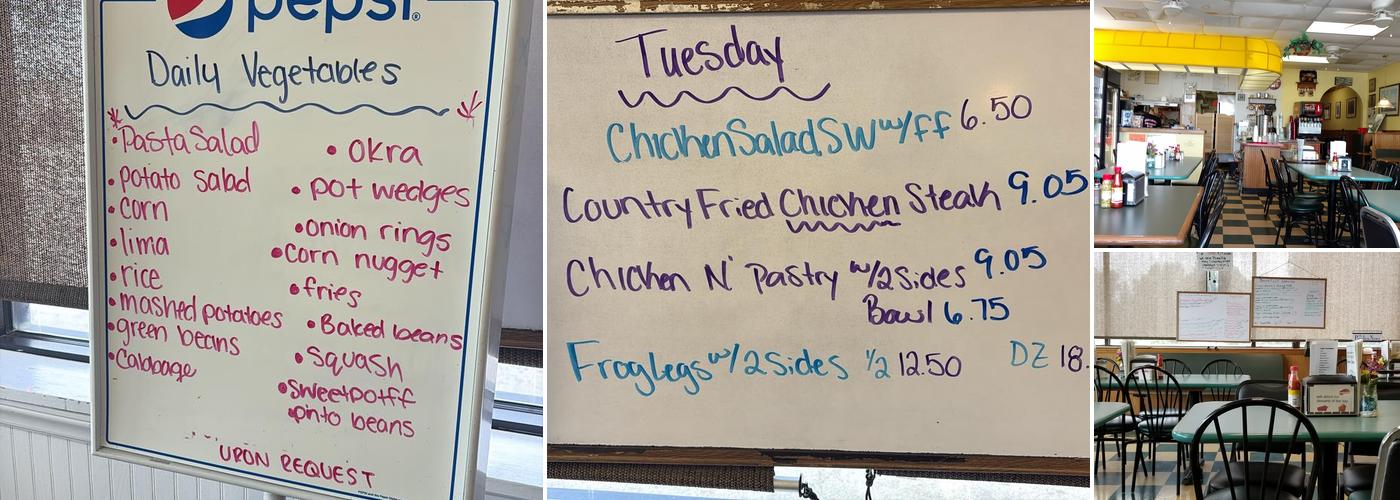 pepsi®
Daily Vegetables
• Pasta Salad
• potato salad
• corn
• lima
• rice
• mashed potatoes
• green beans
• Cabbage
• okra
• pot wedges
• onion rings
• corn nugget
• fries
• Baked beans
• Squash
• Sweet pot ff
• pinto beans
UPON REQUEST
Tuesday
Chicken Salad SW w/ff 6.50
Country Fried Chicken Steak 9.05
Chicken N' Pastry w/2 Sides 9.05
Bowl 6.75
Frog Legs w/2 Sides 1/2 12.50 DZ 18.